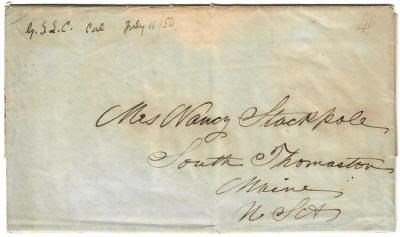 G. S. L. C. Cal July 11/50
Mrs Nancy Stackpole
South Thomaston
Maine
U S A